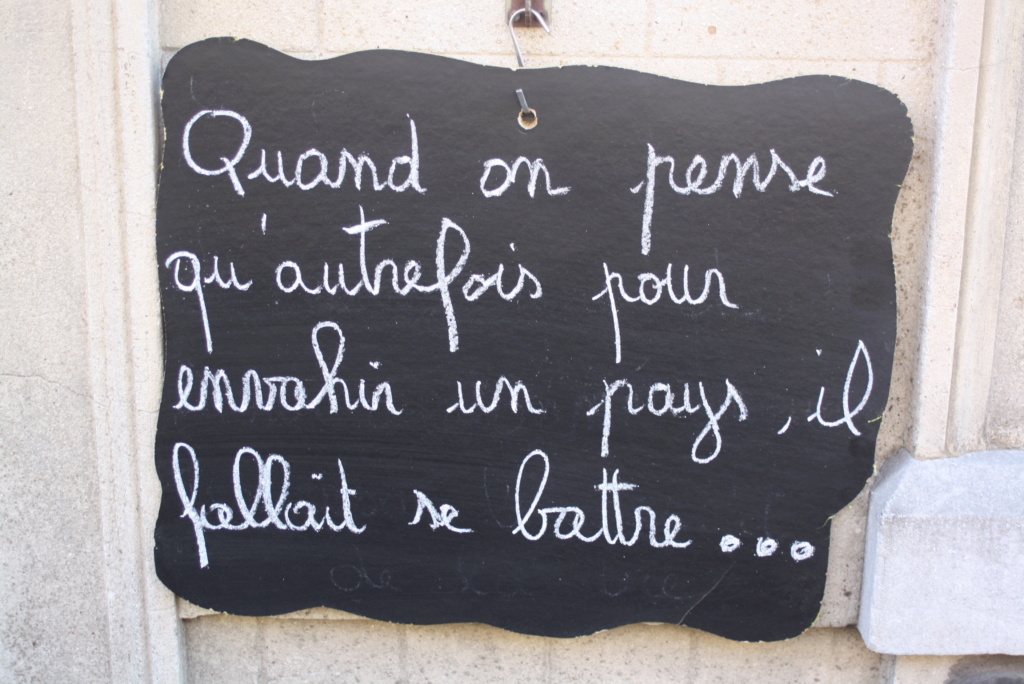 Quand on pense
qu'autrefois pour
envahir un pays, il
fallait se battre...
de la vie